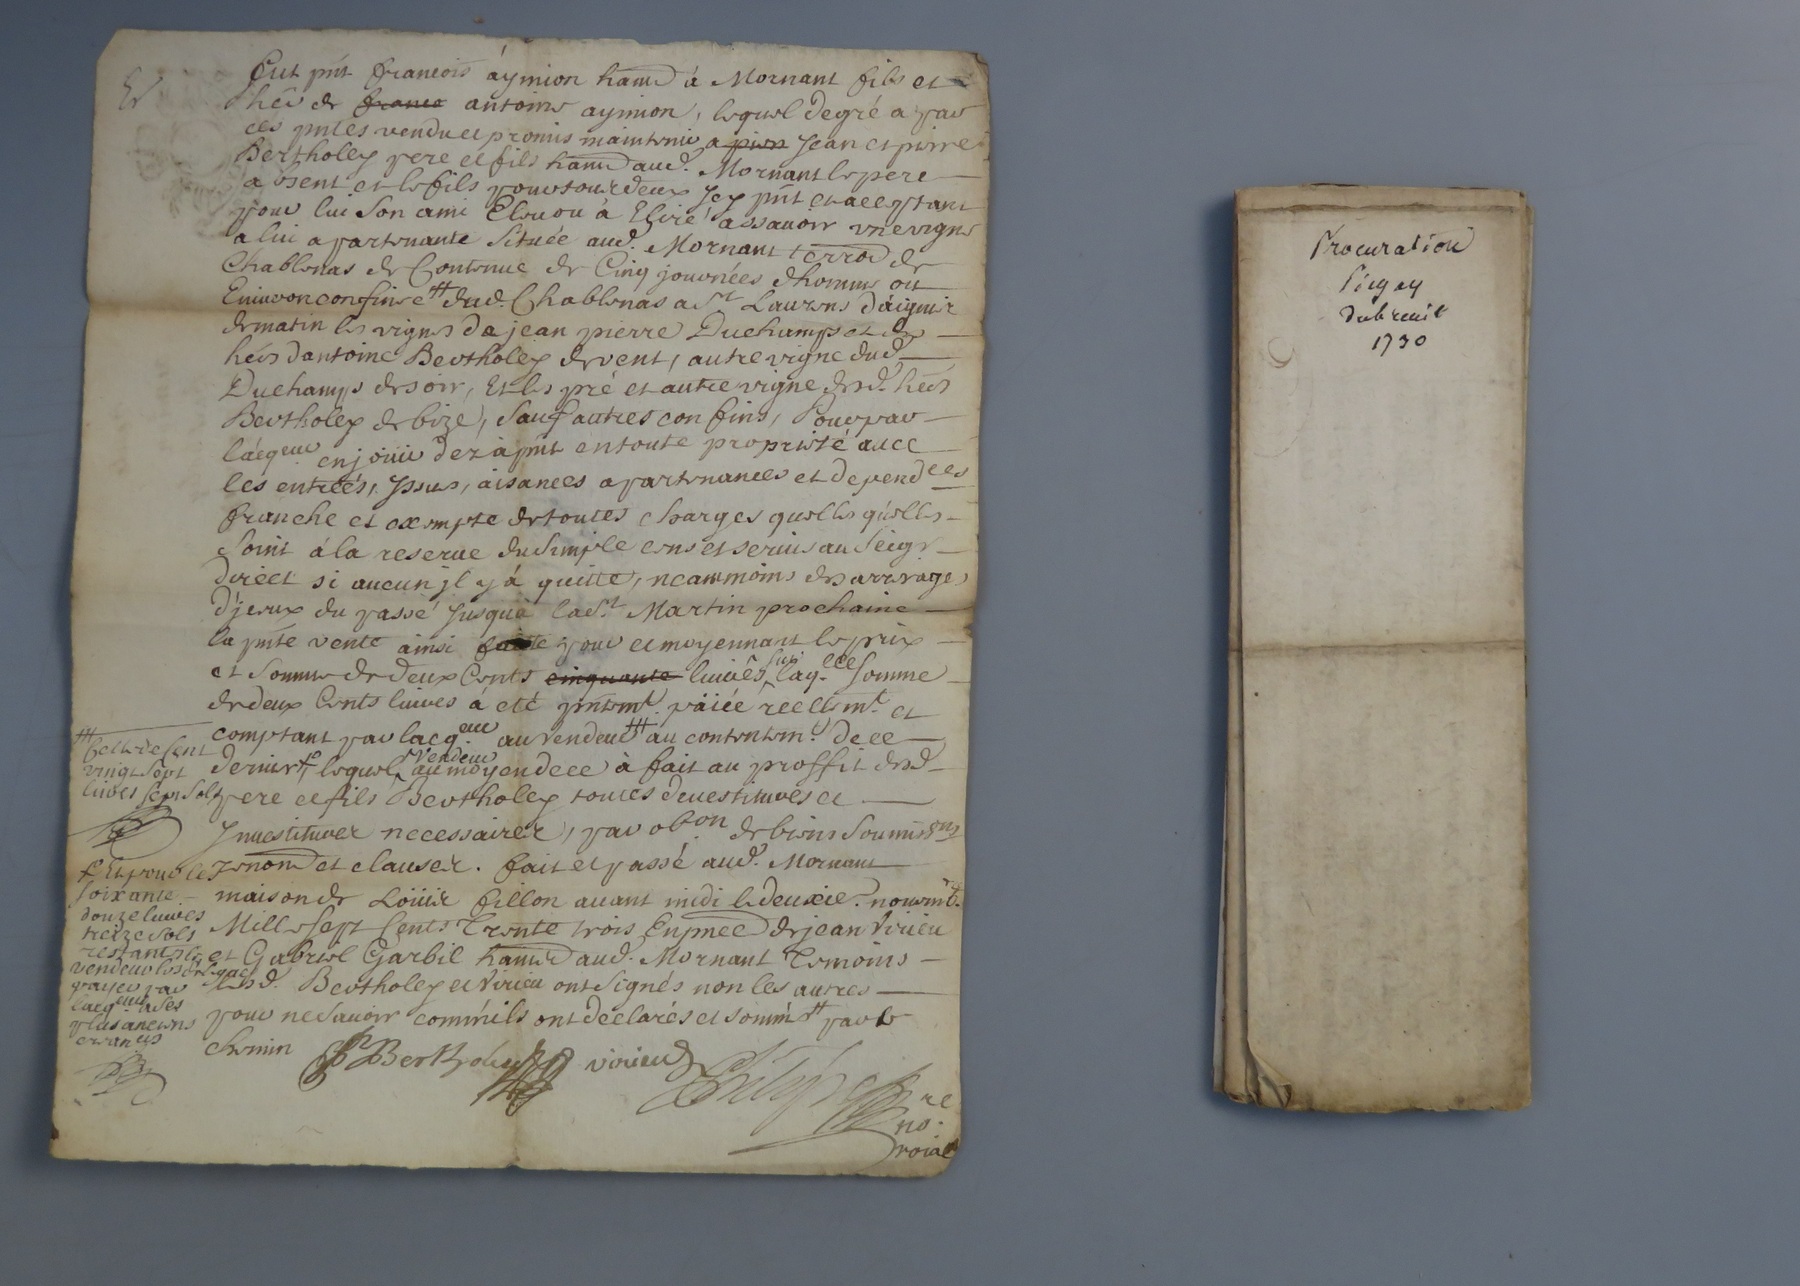 Et
Fut pnt francois aymion hant à Mornant fils et
her de franco antoine aymion, lequel degré a par
ces pntes vendu et promis maintenir a pierr Jean et pierre
Bertholey pere et fils hant aud. Mornant le pere
absent et le fils pour tour deux Icy pnt et acceptant
pour lui son ami Eleu ou à Elire assavoir vne vigne
a lui apartenante Située aud. Mornant terroir de
Chablenas de Contenue de Cinq journées dhomme ou
Environ confine dud. Chablenas a St Laurens d'aigni
de matin les vignes de jean pierre Duchamps et de
hers dantoine Bertholey de vent, autre vigne dud.
Duchamps de soir, Et les pré et autre vigne desd. hers
Bertholey de bize, Sauf autres confins, Pour par
lácqeur en joüir dez à pnt en toute proprieté avec
les entrées, Issues, aisances apartenances et dependces
franche et exempte de toutes charges quelles q'uelles
soint á la reserve du simple cens et servis au Seigr
direct si aucun jl y á quitte, neammoins des arrerages
d'jceux du passé Jusqu'à la St Martin prochaine
la pnte vente ainsi faite pour et moyennant le prix
et Somme de deux Cents cinquante livres, laq. Somme
de deux Cents livres á eté pntemt. páiée reellemt. et
comptant par lacq.eur au vendeur au contentemt. de ce
dernier, lequel vendeur au moyen de ce à fait au proffit desd.
pere et fils Bertholey toutes devestitures et
Investitures necessaires, par obon de biens soumissons
renond et clauses. fait et passé aud. Mornant
maison de Loüis fillon avant midi le deuxie. novemb.
Mille Sept Cents Trente trois En pnce de jean Virieu
et Gabriel Garbil hant aud. Mornant Temoins
Lesd. Bertholey et Virieu ont signés non les autres
pour ne Sávoir comm'ils ont declarés et sommé par le
chemin
Celle de Cent
vingt Sept
livres sept sols
Et pour le
soixante
douze livres
treize sols
restants le
vendeur
payer par
lacqeur a ses
plus anciens
creanciers
P Bertholey
virieu
re
no.
roial
Procuration
Pugny
dubreuil
1730